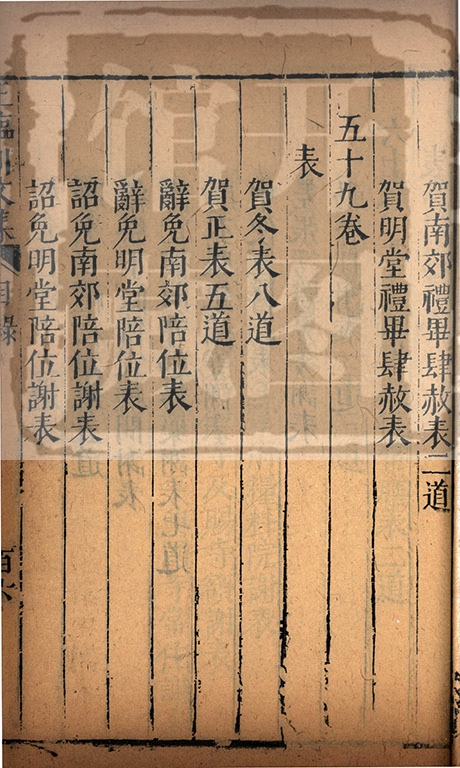 賀南郊禮畢肆赦表二道
賀明堂禮畢肆赦表
五十九卷
表
賀冬表八道
賀正表五道
辭免南郊陪位表
辭免明堂陪位表
詔免南郊陪位謝表
詔免明堂陪位謝表